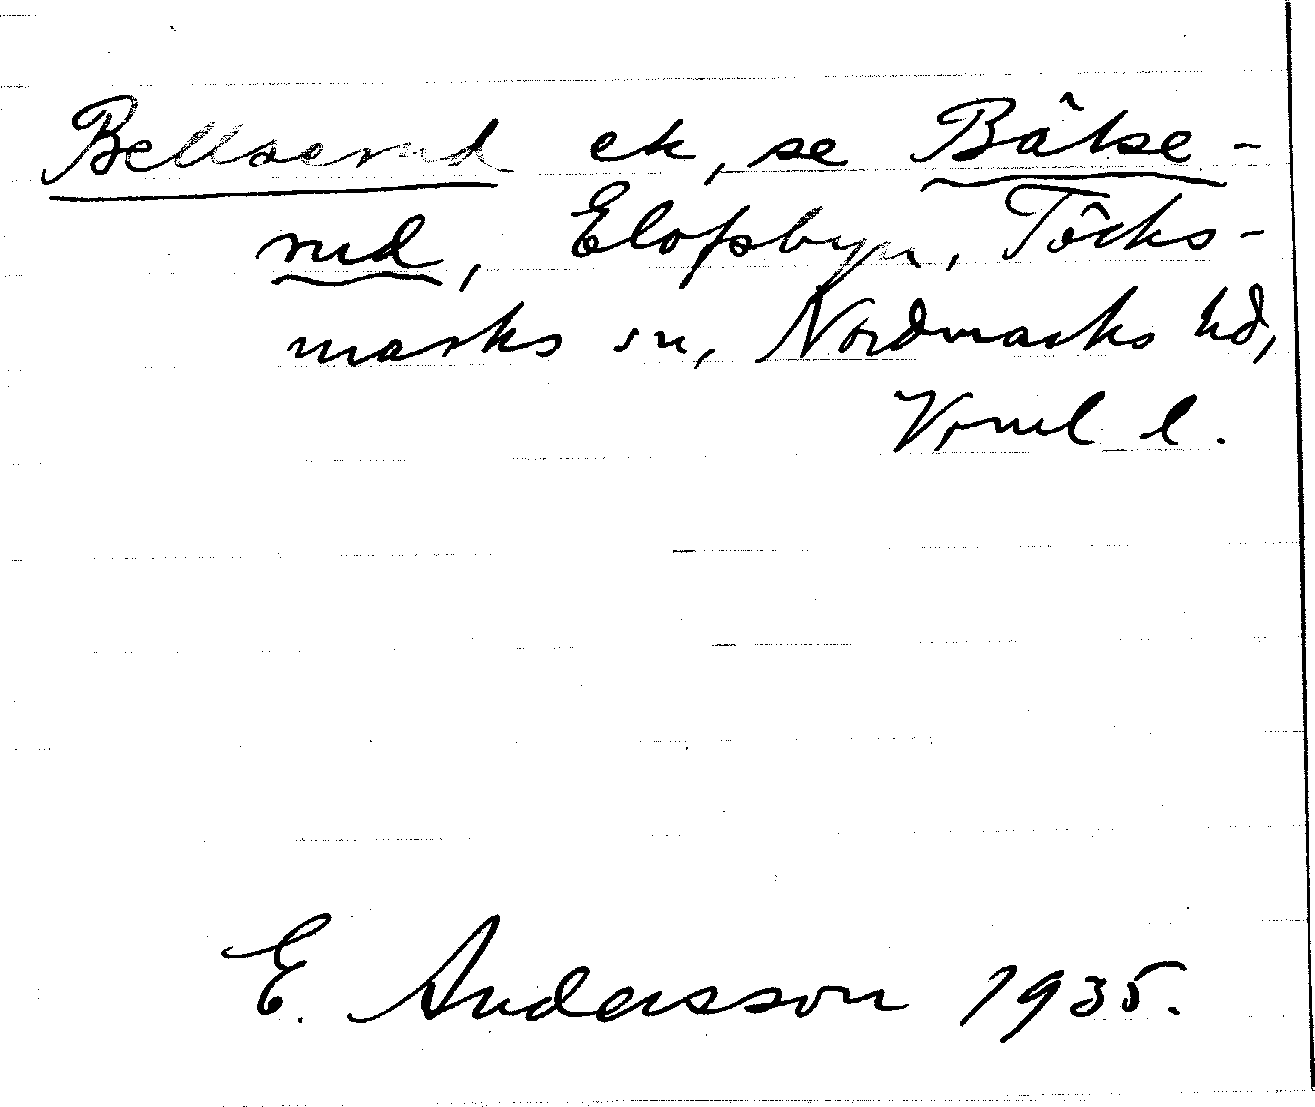 Bellserud ek, se Bålse-
rud, Elofsbyn, Töcks-
marks sn, Nordmarks hd,
Vrml l.
E. Andersson 1935.